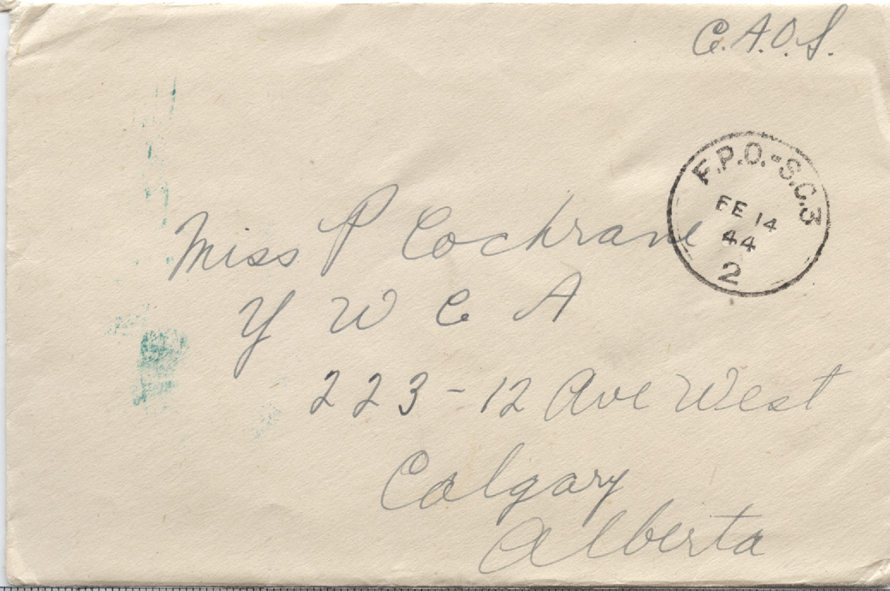 C.A.O.S.
F.P.O.-S.C.3
FE 14
44
2
Miss P Cochrane
Y W C A
223-12 Ave West
Calgary
Alberta